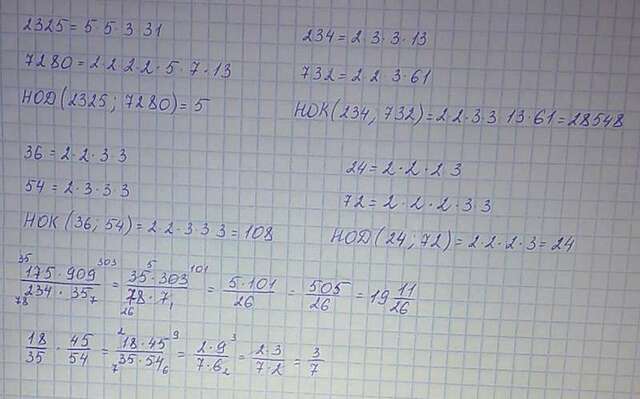 2325 = 5·5·3·31
7280 = 2·2·2·2·5·7·13
НОД(2325; 7280) = 5
234 = 2·3·3·13
732 = 2·2·3·61
НОК(234; 732) = 2·2·3·3·13·61 = 28548
36 = 2·2·3·3
54 = 2·3·3·3
НОК(36; 54) = 2·2·3·3·3 = 108
24 = 2·2·2·3
72 = 2·2·2·3·3
НОД(24; 72) = 2·2·2·3 = 24
35 303 5 101
175·909 / 234·35 = 35·303 / 78·7 = 5·101 / 26 = 505 / 26 = 19 11/26
78 7 26 1
2 9 3
18/35 · 45/54 = 18·45 / 35·54 = 2·9 / 7·6 = 2·3 / 7·2 = 3/7
7 6 2